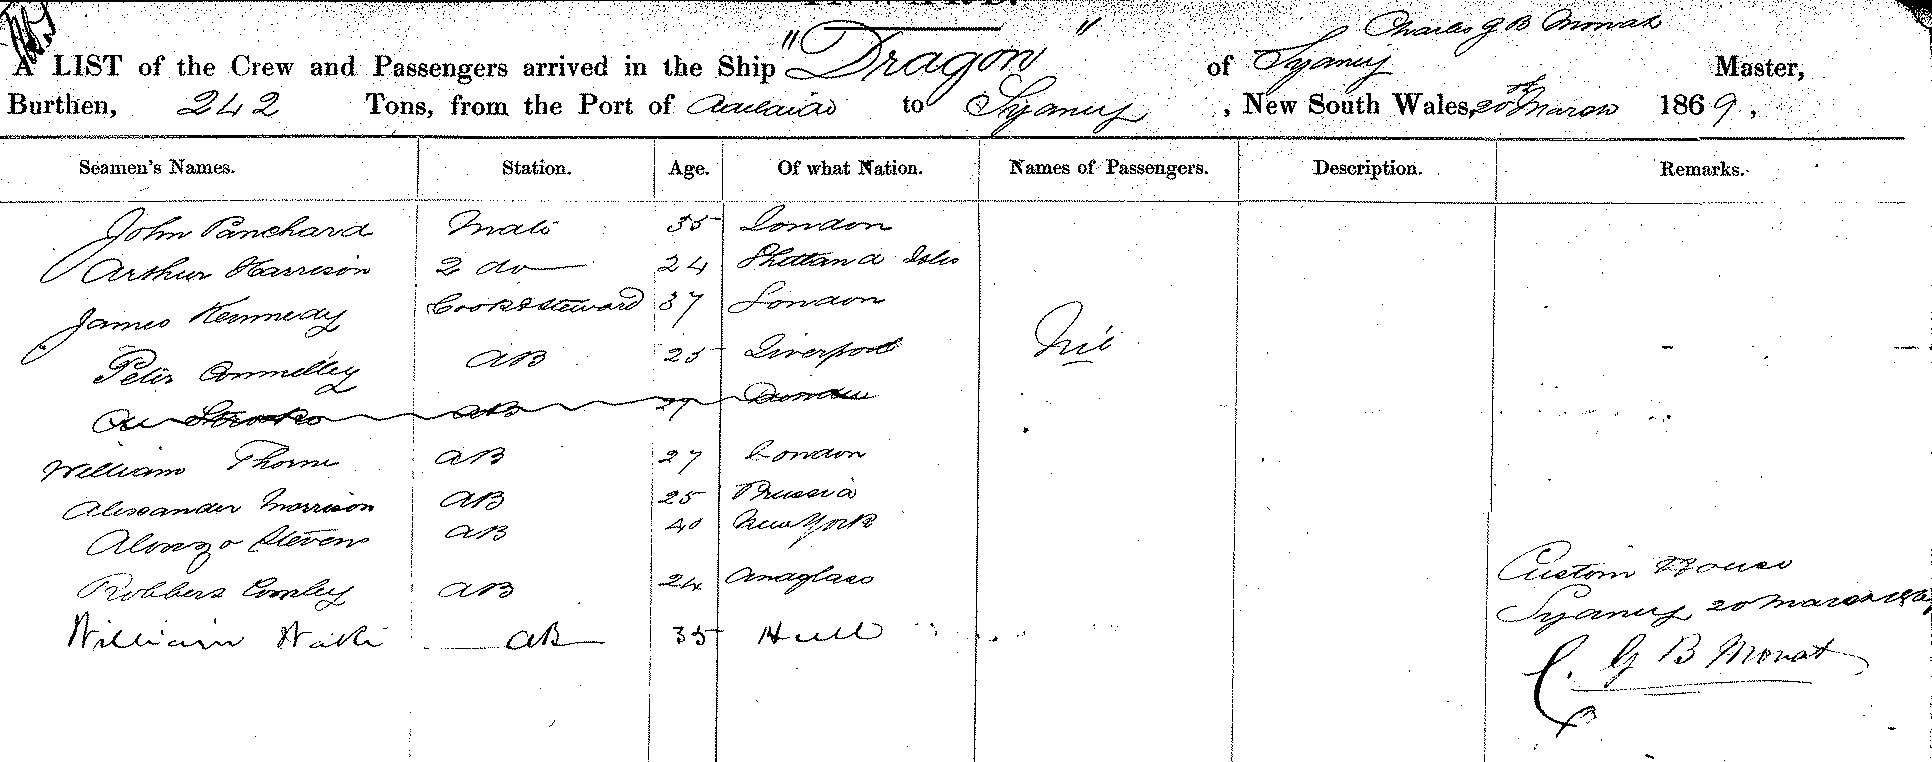 Charles G B Monat
A LIST of the Crew and Passengers arrived in the Ship "Dragon" of Sydney Master,
Burthen, 242 Tons, from the Port of Adelaide to Sydney, New South Wales, 20th March 1869,
Seamen's Names. Station. Age. Of what Nation. Names of Passengers. Description. Remarks.
John Panchard Mate 35 London
Arthur Harrison 2 do 24 Shetland Isles
James Kennedy Cook & Steward 37 London
Nil
Peter Connelley AB 25 Liverpool
AB 27 Dundee
William Thorne AB 27 London
Alexander Morrison AB 25 Prussia
Alonzo Stevens AB 40 New York
Robbers AB 24
William AB 35 Hull
Custom House
Sydney 20 March 1869
C. G B Monat